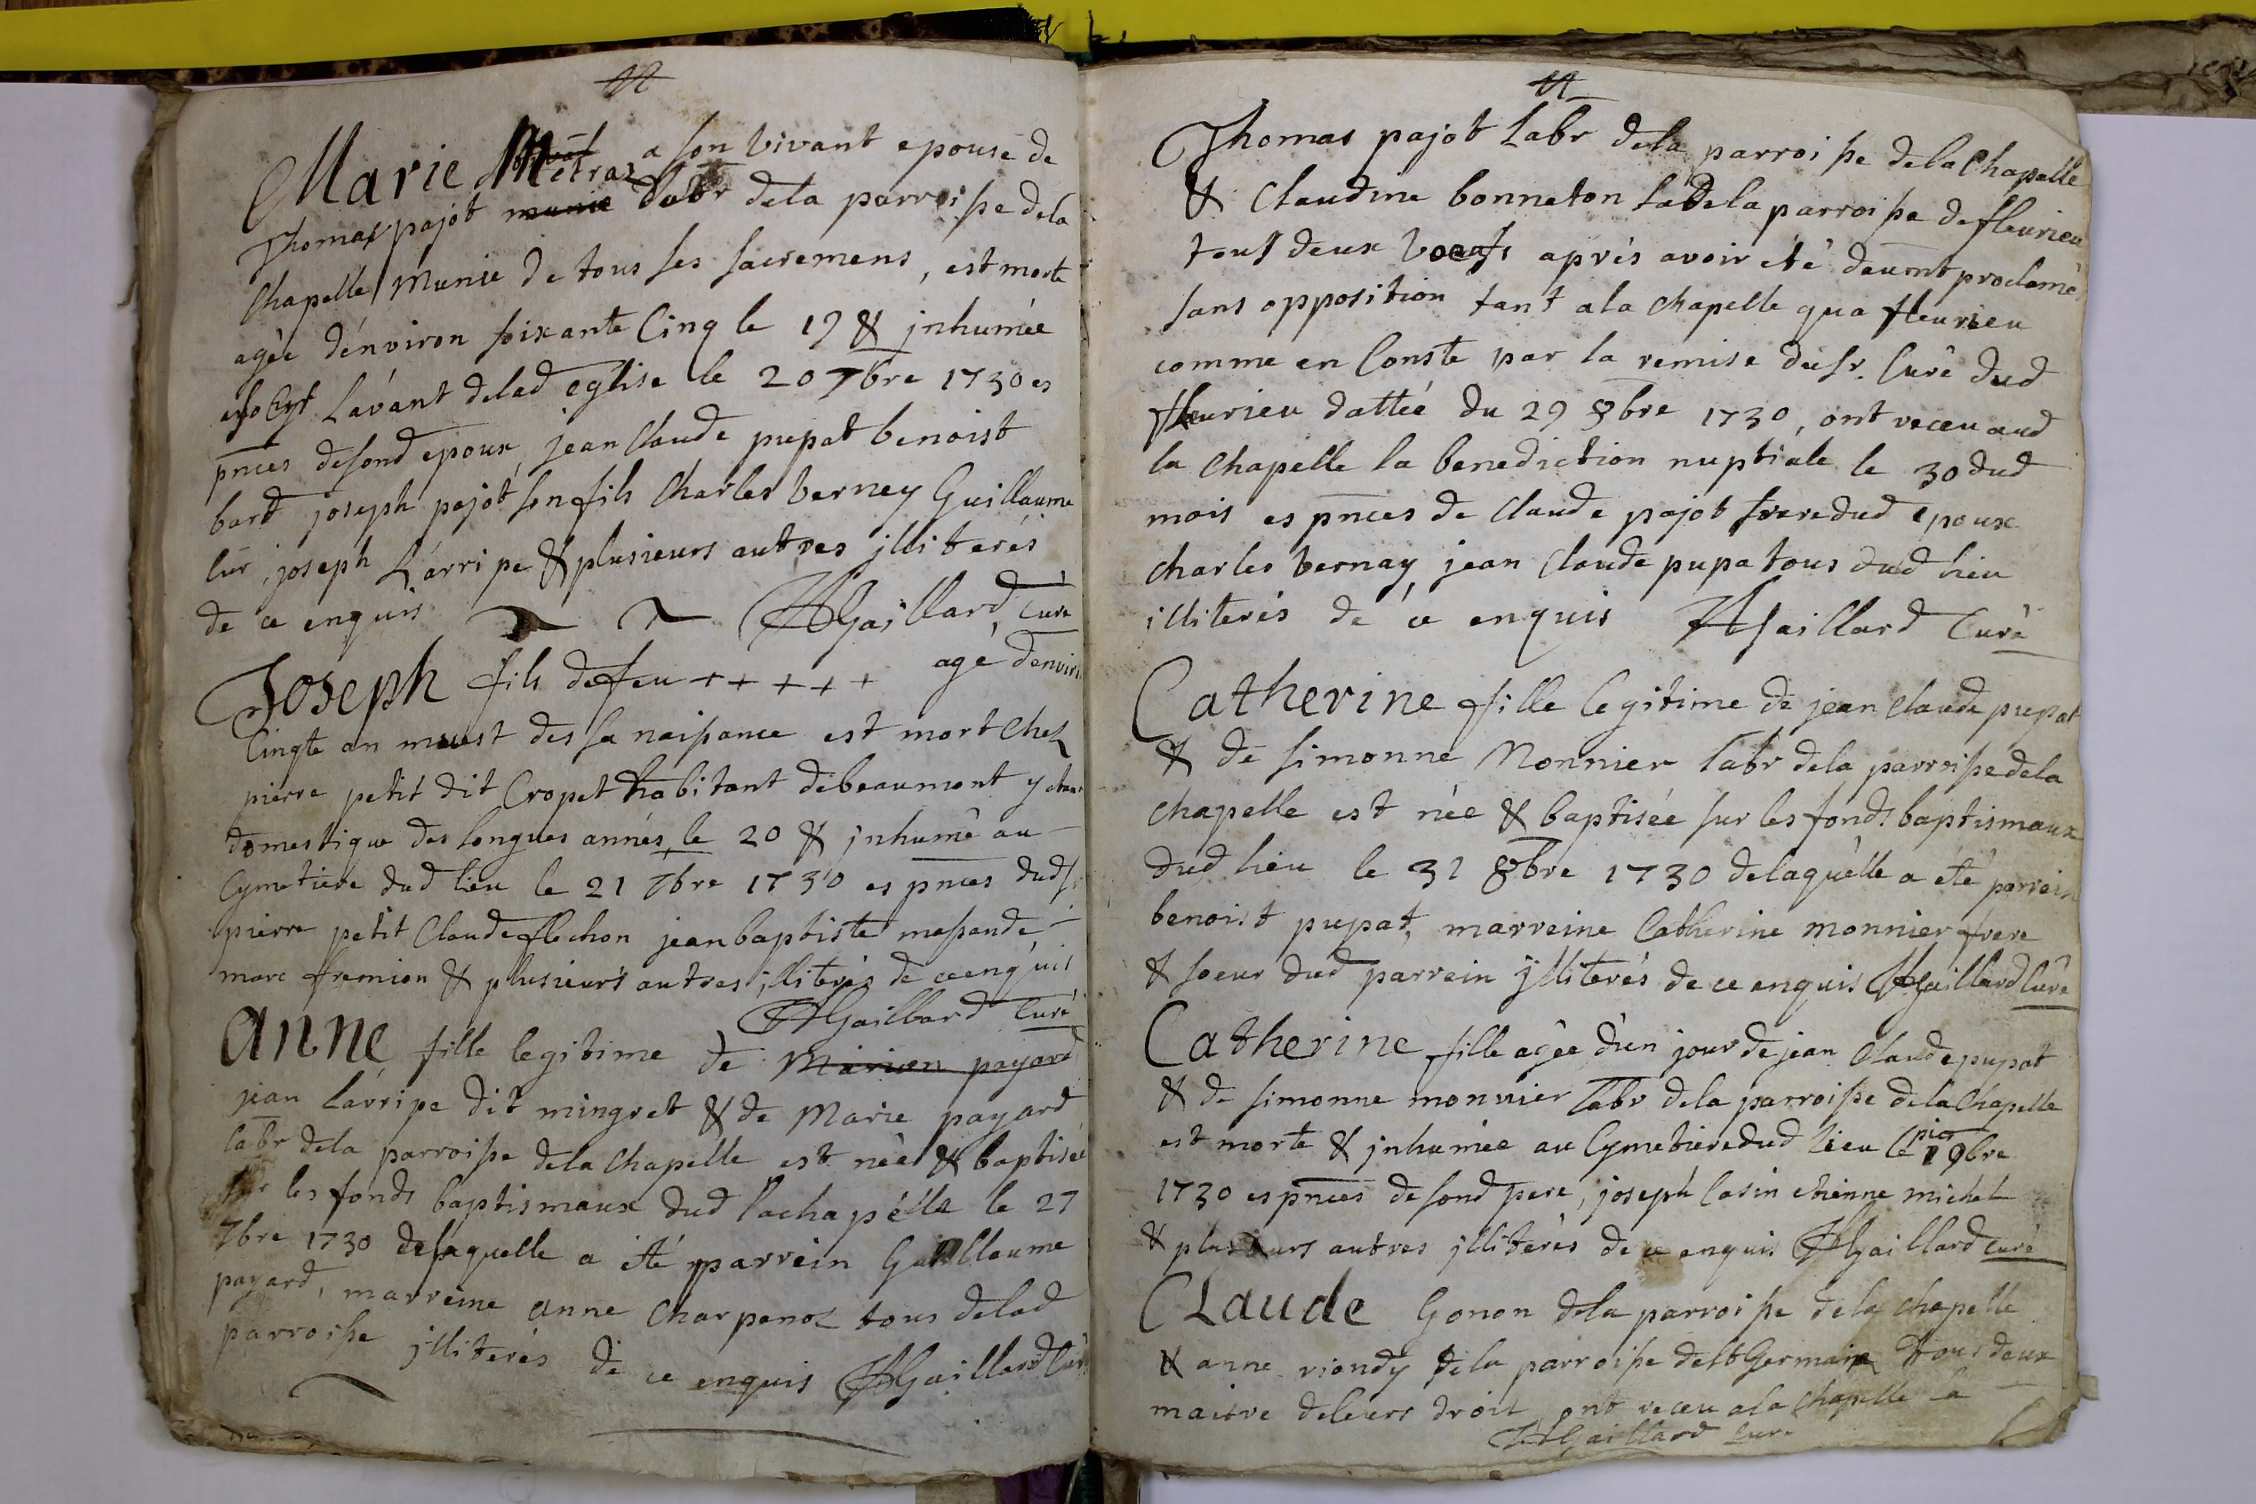 Marie Metras a son vivant epouse de
Thomas pajot labr dela parroisse dela
Chapelle Munie de tous ses sacremens, est morte
agèe d'énviron soixante Cinq le 19 & jnhumée
L'avant delad eglise le 20 7bre 1730 es
pnces desond epoux, jean Claude pupat benoist
bard joseph pajot son fils Charles Verney Guillaume
Cur joseph L'arripe & plusieurs autres jlliterés
de ce enquis Gaillard, Curé
Joseph fils defeu + + + + + agé d'environ
Cinqte an muest des sa naissance est mort Chez
pierre petit dit Cropet habitant debeaumont y etant
domestique des longues annés, le 20 & jnhumé au
Cymetiere dud lieu le 21 7bre 1730 es pnces duds
pierre petit Claude flechon jean baptiste massande,
marc fremion & plusieurs autres jlliterés de ce enquis
Gaillard Curé
Anne fille legitime de Marien payard
jean Larripe dit mingret & de Marie payard
labr dela parroisse dela Chapelle est née & baptisée
sur les fonds baptismaux dud lachapélle le 27
7bre 1730 delaquelle a été parrein Guillaume
payard, marreine anne Charpenoz tous delad
parroisse jlliterés de ce enquis Gaillard Curé
Thomas pajot labr dela parroisse dela Chapelle
& Claudine bonneton dela parroisse de fleurieu
tous deux Voeufs aprés avoir eté deumt proclamé
sans opposition tant ala Chapelle qua fleurieu
comme en Conste par la remise dusr. Curé dud
fleurieu dattéé du 29 8bre 1730, ont receu aud
la Chapelle la benediction nuptiale le 30 dud
mois es pnces de Claude pajot frere dud epoux
charles Vernay, jean Claude pupa tous dud lieu
illiterés de ce enquis Gaillard Curé
Catherine fille legitime de jean Claude pupat
& de simonne Monnier labr dela parroisse dela
Chapelle est née & baptisée sur les fonds baptismaux
dud lieu le 31 8bre 1730 delaquélle a été parrein
benoist pupat, marreine Catherine monnier frere
& soeur dud parrein jlliterés de ce enquis Gaillard Curé
Catherine fille agée d'un jour de jean Claude pupat
& de simonne monnier labr dela parroisse dela Chapelle
est morte & jnhumée au Cymetiere dud lieu le pier 9bre
1730 es pnces desond pere, joseph Casin etienne michel
& plusieurs autres jlliterés de ce enquis Gaillard Curé
CLaude Gonon dela parroisse dela Chapelle
& anne riondy dela parroisse de st Germain tous deux
maitre deleurs droit ont receu ala Chapelle la
Gaillard Curé